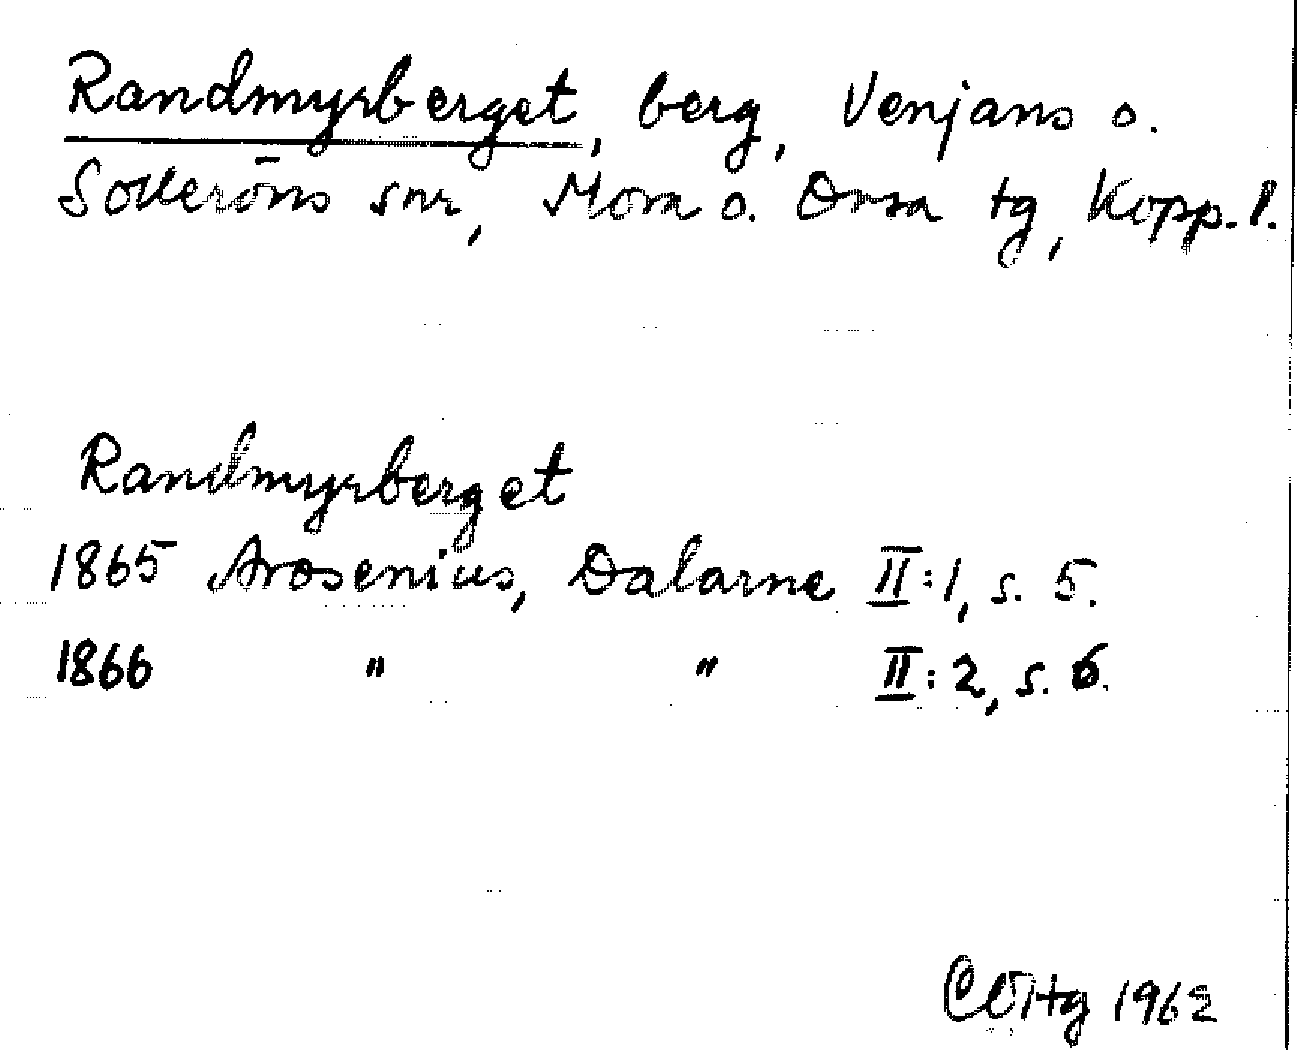 Randmyrberget, berg, Venjans o.
Solleröns snr, Mora o. Orsa tg, Kopp. l.
Randmyrberget
1865 Arosenius, Dalarne II:1, s. 5.
1866 " " II:2, s. 6.
1962